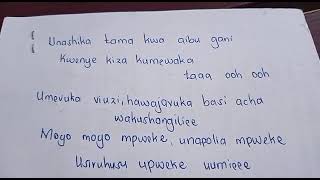 Unashika tama kwa aibu gani
Kwenye kiza kumewaka
taaa ooh ooh
Umevuka viuzi, hawajavuka basi acha
wakushangiliee
Moyo moyo mpweke, unapolia mpweke
Usiruhusu upweke uumieee